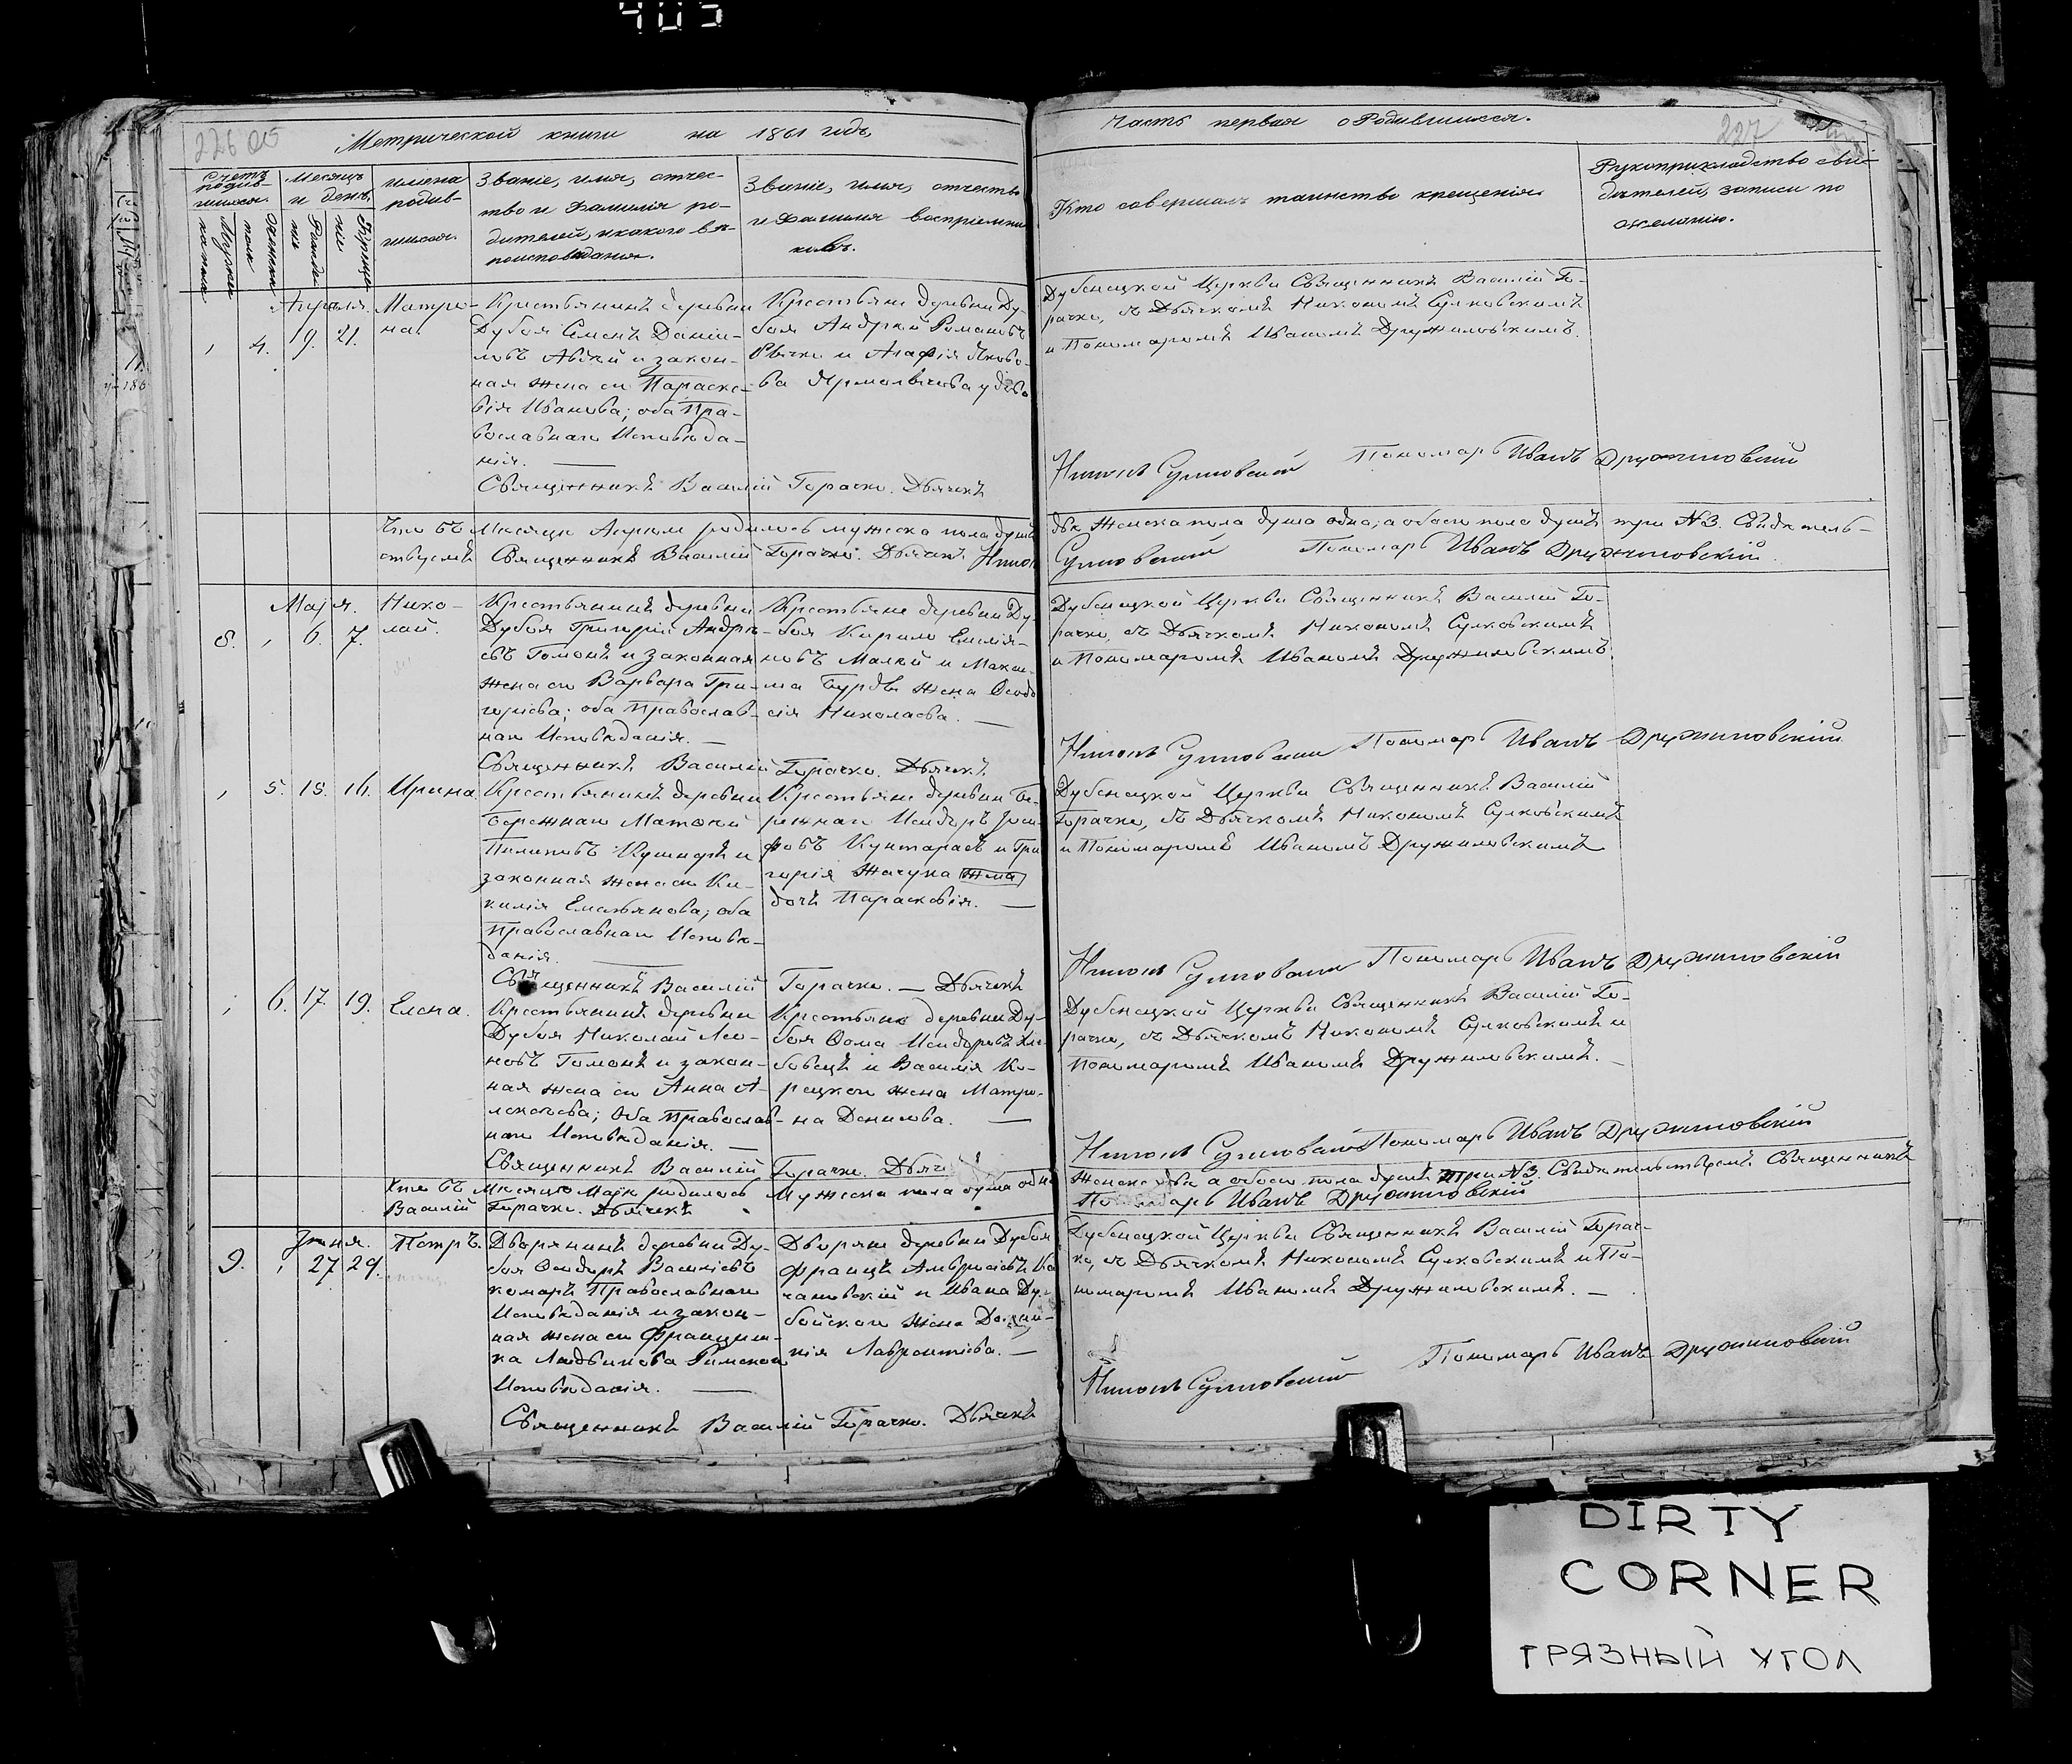 403
226
Метрической книги на 1861 годъ
Часть первая о Родившихся.
227
Счетъ родив-шихся.
Мужеска пола
Женска пола
Месяцъ и день
Рожденія
Крещенія
имена родив-шихся.
Званіе, имя, отчес-
тво и фамилія ро-
дителей, и какого вѣ-
роисповѣданія.
Званіе, имя, отчество
и фамилія воспріемни-
ковъ.
Кто совершалъ таинство крещенія.
Рукоприкладство сви-
дѣтелей, записи по
желанію.
Апреля.
4. 19. 21.
Матро-
на.
Крестьянинъ деревни
Дубоя Семенъ Даніи-
ловъ Авдей и закон-
ная жена ег Параске-
вія Иванова; оба Пра-
вославнаго Исповѣда-
нія. —
Священникъ Василій Горачко. Дьячекъ
Крестьяне деревни Ду-
боя Андрей Романовъ
и Агафія Яково-
ва
Дубенецкой Церкви Священникъ Василій Го-
рачко, съ Дьячкомъ Никономъ Сулковскимъ
и Пономаремъ Иваномъ Дружиловскимъ.
Никонъ Сулковский Пономарь Иванъ Дружиловскій
Что въ Месяце Апреле родилось мужеска пола душъ
двѣ Женска пола душа одна; а обоего пола душъ три №3. Свидѣтель-
ствуемъ Священникъ Василій Горачко. Дьячекъ Никонъ
Сулковский Пономарь Иванъ Дружиловскій
Маія.
8. 6. 7.
Нико-
лай.
Крестьянинъ деревни
Дубоя Григорій Андре-
евъ Гомонъ и законная
жена ег Варвара Гри-
горіева; оба Православ-
наго Исповѣданія. —
Священникъ Василій Горачко. Дьячекъ
Крестьяне деревни Ду-
боя Кирило Емелія-
новъ Малей и Макси-
ма жена Феодо-
сія Николаева. —
Дубенецкой Церкви Священникъ Василій Го-
рачко, съ Дьячкомъ Никономъ Сулковскимъ
и Пономаремъ Иваномъ Дружиловскимъ.
Никонъ Сулковский Пономарь Иванъ Дружиловскій
5. 15. 16.
Ирина.
Крестьянинъ деревни
Бережнаго Матѳей
Пилиповъ и
законная жена ег Ки-
килія Емельянова; оба
Православнаго Исповѣ-
данія. —
Священникъ Василій Горачко. — Дьячекъ
Крестьяне деревни Бе-
режнаго Исидоръ Іоси-
фовъ и Гри-
горія жена
дочь Параскевія. —
Дубенецкой Церкви Священникъ Василій
Горачко, съ Дьячкомъ Никономъ Сулковскимъ
и Пономаремъ Иваномъ Дружиловскимъ
Никонъ Сулковский Пономарь Иванъ Дружиловскій
6. 17. 19.
Елена.
Крестьянинъ деревни
Дубоя Николай Лео-
новъ Гомонъ и закон-
ная жена ег Анна А-
лексеева; Оба Православ-
наго Исповѣданія. —
Священникъ Василій Горачко. Дьячекъ
Крестьяне деревни Ду-
боя Ѳома Исидоровъ Хле-
бовецъ и Василія Ко-
рецкого жена Матро-
на Данилова. —
Дубенецкой Церкви Священникъ Василій Го-
рачко, съ Дьячкомъ Никономъ Сулковскимъ и
Пономаремъ Иваномъ Дружиловскимъ. —
Никонъ Сулковский Пономарь Иванъ Дружиловскій
Что въ Месяце Маіе родилось Мужеска пола душа одна
Женска двѣ а обоего пола душъ три №3. Свидѣтельствуемъ Священникъ
Василій Горачко. Дьячекъ
Пономарь Иванъ Дружиловскій
Іюня.
9. 27 29.
Петръ.
Дворянинъ деревни Ду-
боя Ѳеодоръ Василіевъ
Комаръ Православнаго
Исповѣданія и закон-
ная жена ег Францишка
Людвикова Римскаго
Исповѣданія. —
Священникъ Василій Горачко. Дьячекъ
Дворяне деревни Дубоя
Францъ Амвросіевъ Ка-
чановскій и Ивана Ду-
бойского жена
Лаврентіева. —
Дубенецкой Церкви Священникъ Василій Горач-
ко, съ Дьячкомъ Никономъ Сулковскимъ и По-
номаремъ Иваномъ Дружиловскимъ. —
Никонъ Сулковский Пономарь Иванъ Дружиловскій
DIRTY
CORNER
ГРЯЗНЫЙ УГОЛ